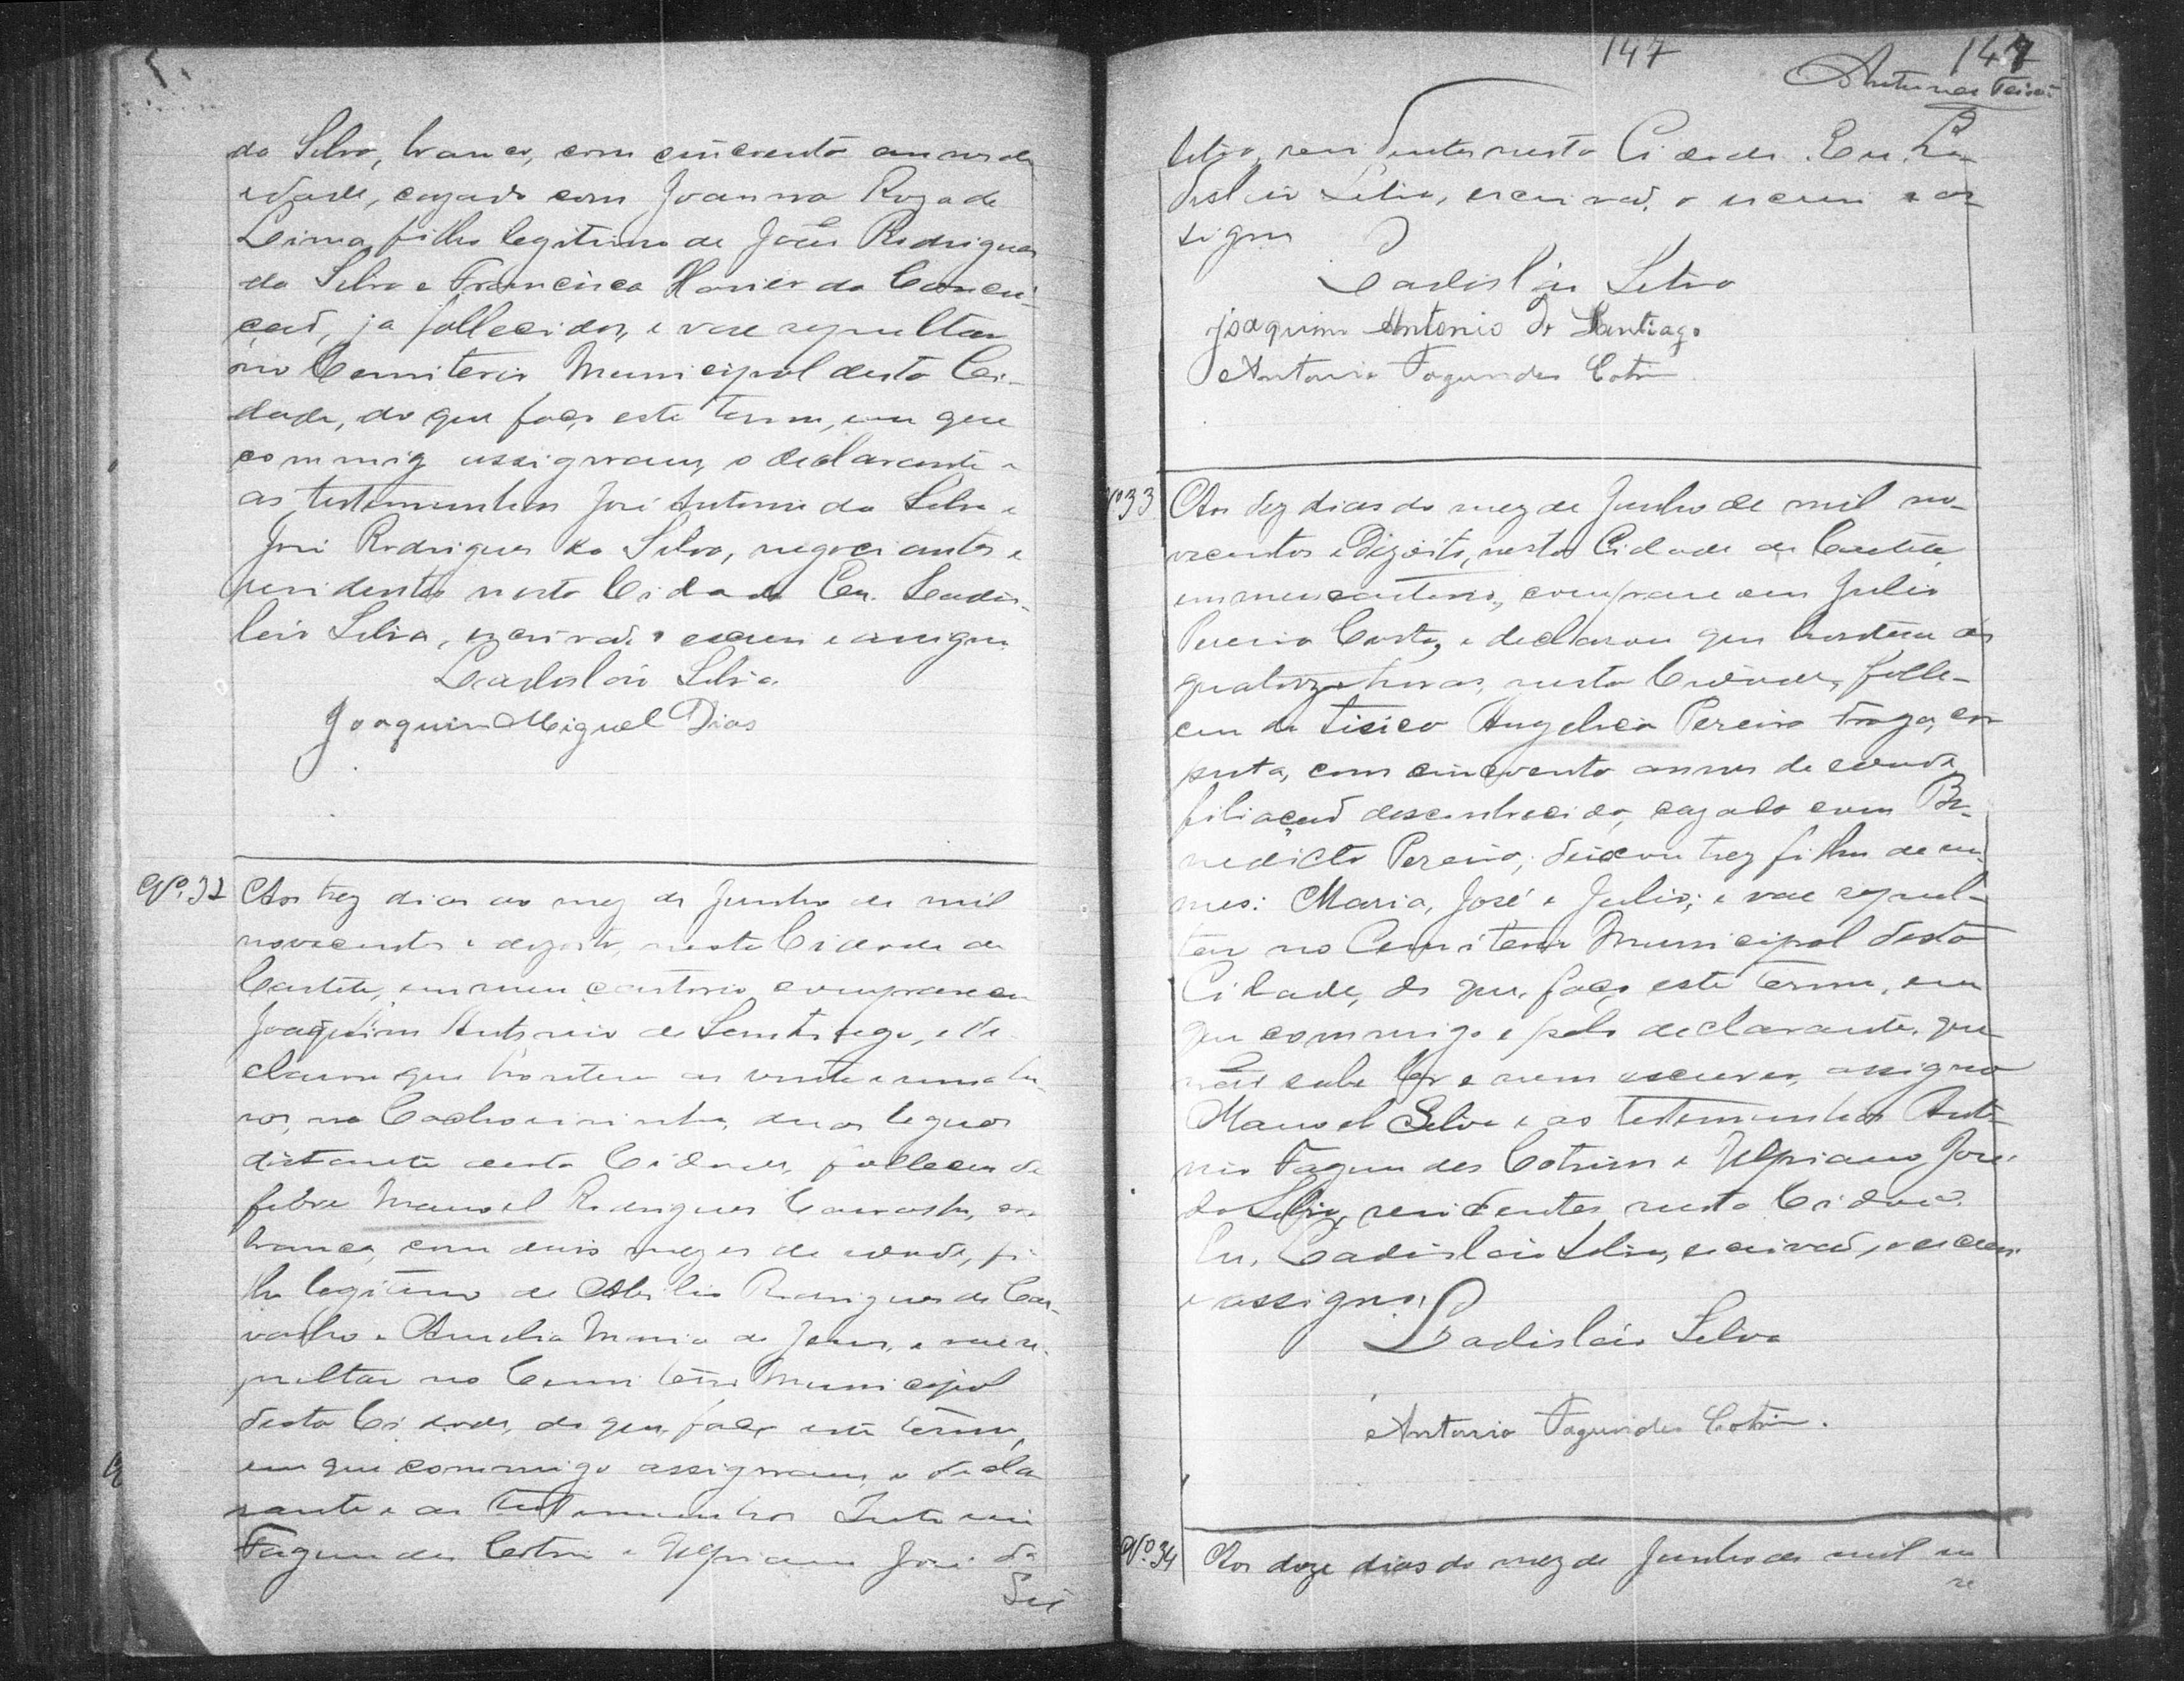 da Silva, branco, com cincoenta annos de
edade, cazado com Joanna Roza de
Lima, filho legitimo de João Rodrigues
da Silva e Francisca Xavier da Concei-
ção, ja fallecidos, e vae sepultar
no Cemiterio Municipal desta Ci-
dade, do que faço este termo, em que
commigo assignam, o declarante e
as testemunhas José Antonio da Silva e
José Rodrigues da Silva, negociantes e
residentes nesta Cidade Eu. Ladis-
láo Silva, escrivão o escrevi e assigno.
Ladisláo Silva.
Joaquim Miguel Dias
Nº. 32 Aos trez dias do mez de Junho de mil
novecentos e dezoito, nesta Cidade de
Caeteté, em meu cartorio compareceu
Joaquim Antonio de Santiago, e de
clarou que hontem as vinte e uma ho-
ras, na Cachoeirinha, duas leguas
distante desta Cidade, falleceu de
febre Manoel Rodrigues Carvalho, cor
branca, com dois mezes de edade, fi
lho legitimo de Abilio Rodrigues de Car-
valho e Amelia Maria de Jesus, e vae se-
pultar no Cemiterio Municipal
desta Cidade, do que faço este termo,
em que commigo assignam, o decla
rante e as testemunhas Antonio
Fagundes Cotrim e Ulpiano José da
Sil
147
147
Antunes
Silva, residentes nesta Cidade. Eu. La-
disláo Silva, escrivão, o escrevi e as-
signo
Ladisláo Silva
Joaquim Antonio de Santiago
Antonio Fagundes Cotrim
Nº 33 Aos dez dias do mez de Junho de mil no-
vecentos e Dizoito, nesta Cidade de Caeteté,
em meu cartorio, compareceu Julio
Pereira Costa, e declarou que hontem as
quatorze horas, nesta Cidade, falle-
ceu de tisica Angelica Pereira Fraga, cor
preta, com cincoenta annos de edade,
filiação desconhecida, cazada com Be-
nedicto Pereira; deixou trez filhos de no-
mes: Maria, José e Julio; e vae sepul-
tar no Cemiterio Municipal desta
Cidade, do que, faço este termo, em
que commigo e pelo declarante, que
não sabe ler e nem escrever, assigna
Manoel Silva e as testemunhas Anto-
nio Fagundes Cotrim e Ulpiano José
da Silva, residentes nesta Cidade.
Eu, Ladisláo Silva, escrivão, o escrevi
e assigno.
Ladisláo Silva
Antonio Fagundes Cotrim.
Nº. 34 Aos doze dias do mez de Junho de mil no